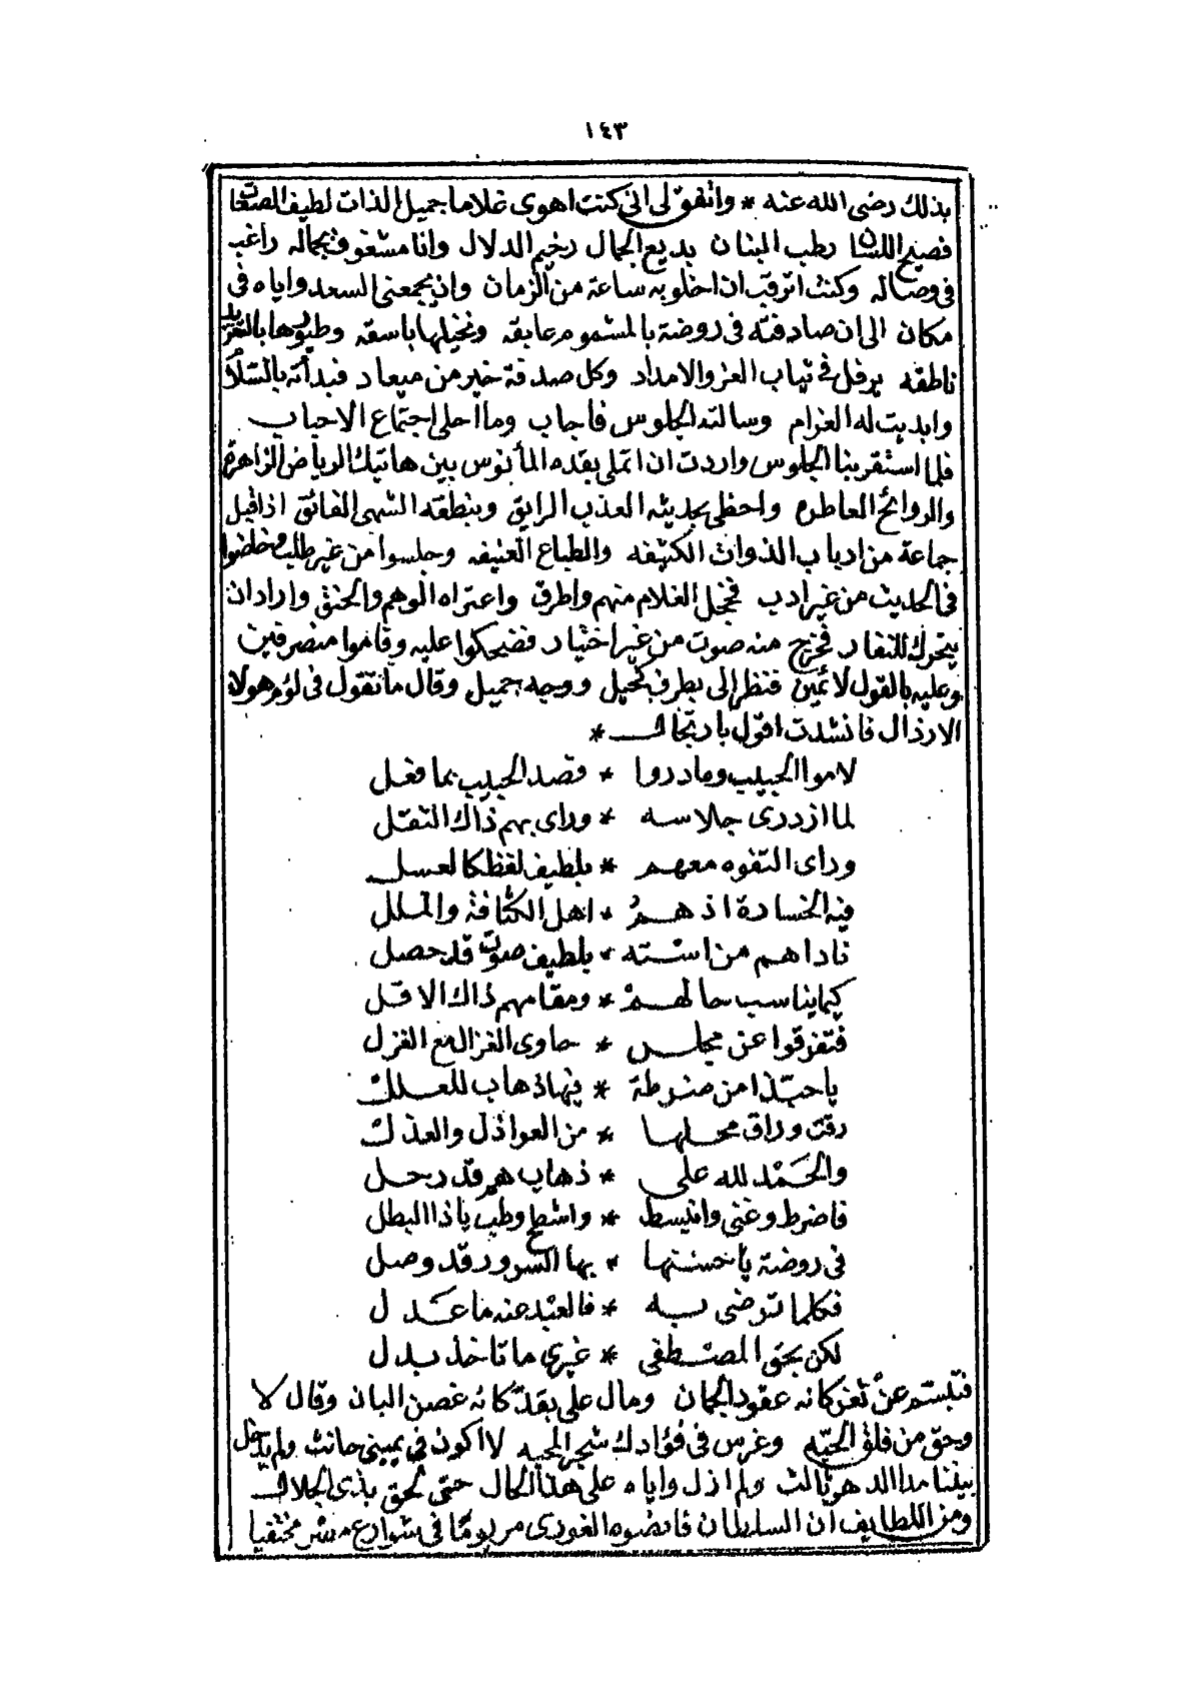 ١٤٣
بذلك رضى الله عنه * واتفق لى انى كنت اهوى غلاما جميل الذات لطيف الصفات
فصيح اللسان رطب البنان بديع الجمال رخيم الدلال وانا مشغوف بجماله راغب
فى وصاله وكنت اترقب ان اخلو به ساعة من الزمان وان يجمعنى السعد واياه فى
مكان الى ان صادفته فى روضة بالمشموم عابقه ونخيلها باسقه وطيورها بالتغريد
ناطقه يرفل فى ثياب العز والامداد وكل صدفة خير من ميعاد فبدأته بالسلام
وابديت له الغرام وسالته الجلوس فاجاب وما احلى اجتماع الاحباب
فلما استقر بنا الجلوس واردت ان اتملى بقده المأنوس بين هاتيك الرياض الزاهرة
والروائح العاطره واحظى بحديثه العذب الرايق وبنطقه الشهى الفائق اذ اقبل
جماعة من ارباب الذوات الكثيفه والطباع العنيفه وجلسوا من غير طلب وخاضوا
فى الحديث من غير ادب فخجل الغلام منهم واطرق واعتراه الوهم والحنق واراد ان
يتحرك للنفار فخرج منه صوت من غير اختيار فضحكوا عليه وقاموا منصرفين
وعليه بالقول لائمين فنظر الى بطرف كحيل ووجه جميل وقال ما تقول فى لوم هولاء
الارذال فانشدت اقول بارتجال *
لاموا الحبيب وما دروا * قصد الحبيب بما فعل
لما ازدرى جلاسه * وراى بهم ذاك الثقل
وراى التفوه معهم * بلطيف لفظ كالعسل
فيه الخسارة اذ هم * اهل الكثافة والملل
ناداهم من استه * بلطيف صوت قد حصل
كيما يناسب حالهم * ومقامهم ذاك الاقل
فتفرقوا عن مجلس * حاوى الغزال مع الغزل
يا حبذا من ضرطة * فيها ذهاب للعلل
رقت وراق محلها * من العواذل والعذل
والحمد لله على * ذهاب هم قد رحل
فاضرط وغنى وانبسط * واشطح وطب ياذا البطل
فى روضة يا حسنها * بها السرور قد وصل
فكلما ترضى به * فالعبد عنه ما عدل
لكن بحق المصطفى * غيرى ما تاخذ بدل
فتبسم عن ثغر كانه عقود الجمان ومال على بقد كانه غصن البان وقال لا
وحق من فلق الحبه وغرس فى فؤادك شجر المحبه لا اكون فى يمينى حانث ولم يدخل
بيننا مدا الدهر ثالث ولم ازل واياه على هذا الحال حتى لحق بذى الجلال
ومن اللطايف ان السلطان قانصوه الغورى مر يوما فى شوارع مصر مختفيا